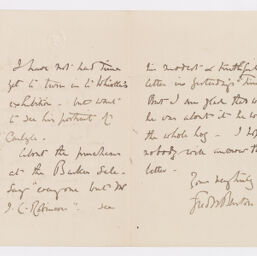 I have not had time
yet to turn in to Whistler's
exhibition - but want
to see his portrait of
Carlyle.
About the purchasers
at the Barker Sale.
Say "everyone but Mr
J. C. Robinson". see
his modest & truthful
letter in yesterday's Times
But I am glad this w
he was about it he w
the whole hog - I hope
nobody will answer the
letter -
Yours very truly
Fred W Burton